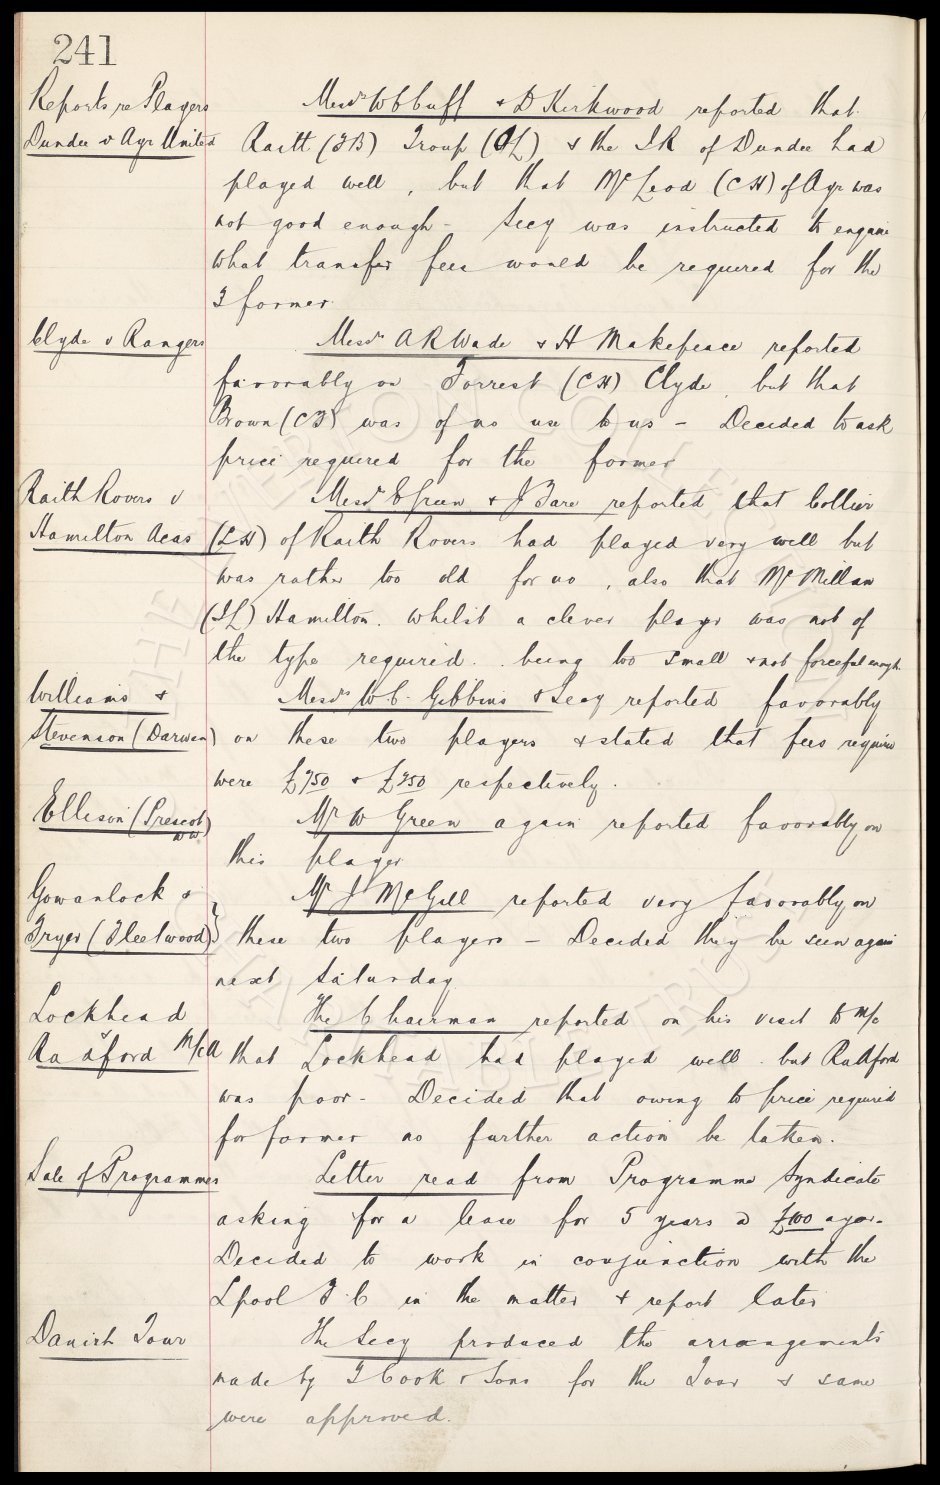 241
Reports re Players
Dundee v Ayr United
Messrs W C Cuff & D Kirkwood reported that
Raitt (FB) Troup (OL) & the IR of Dundee had
played well, but that McLeod (CH) of Ayr was
not good enough - Secy was instructed to enquire
what transfer fees would be required for the
3 former.
Clyde v Rangers
Messrs A R Wade & H Makepeace reported
favorably on Forrest (CH) Clyde, but that
Brown (CF) was of no use to us - Decided to ask
price required for the former
Raith Rovers v
Hamilton Acas
Messrs E Green & J Fare reported that Collier
(LH) of Raith Rovers had played very well but
was rather too old for us, also that McMillan
(IL) Hamilton. whilst a clever player was not of
the type required. being too small & not forceful enough.
Williams &
Stevenson (Darwen)
Messrs W C. Gibbins & Secy reported favorably
on these two players & stated that fees required
were £750 & £250 respectively.
Ellison (Prescot)
Mr W Green again reported favorably on
this player
Gowanlock &
Fryer (Fleetwood)
Mr J McGill reported very favorably on
these two players - Decided they be seen again
next Saturday
Lockhead
Radford M/c U
The Chairman reported on his visit to M/c
that Lockhead had played well. but Radford
was poor - Decided that owing to price required
for former no further action be taken.
Sale of Programmes
Letter read from Programme Syndicate
asking for a lease for 5 years @ £100 a year.
Decided to work in conjunction with the
Lpool F.C in the matter & report later
Danish Tour
The Secy produced the arrangements
made by T Cook & Sons for the Tour & same
were approved.